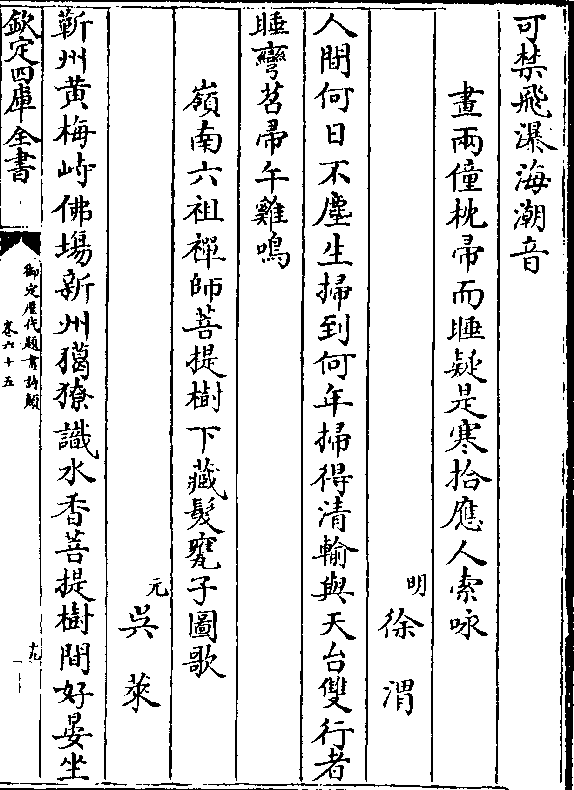 可禁飛瀑海潮音
畫兩僮枕帚而睡疑是寒拾應人索咏
明徐渭
人間何日不塵生掃到何年掃得清輸與天台雙行者
睡彎苕帚午雞鳴
嶺南六祖禪師菩提樹下藏髮甕子圖歌
元吳萊
蘄州黄梅峙佛場新州獦獠識水香菩提樹間好晏坐
欽定四庫全書
御定歷代題畫詩類
卷六十五
十九